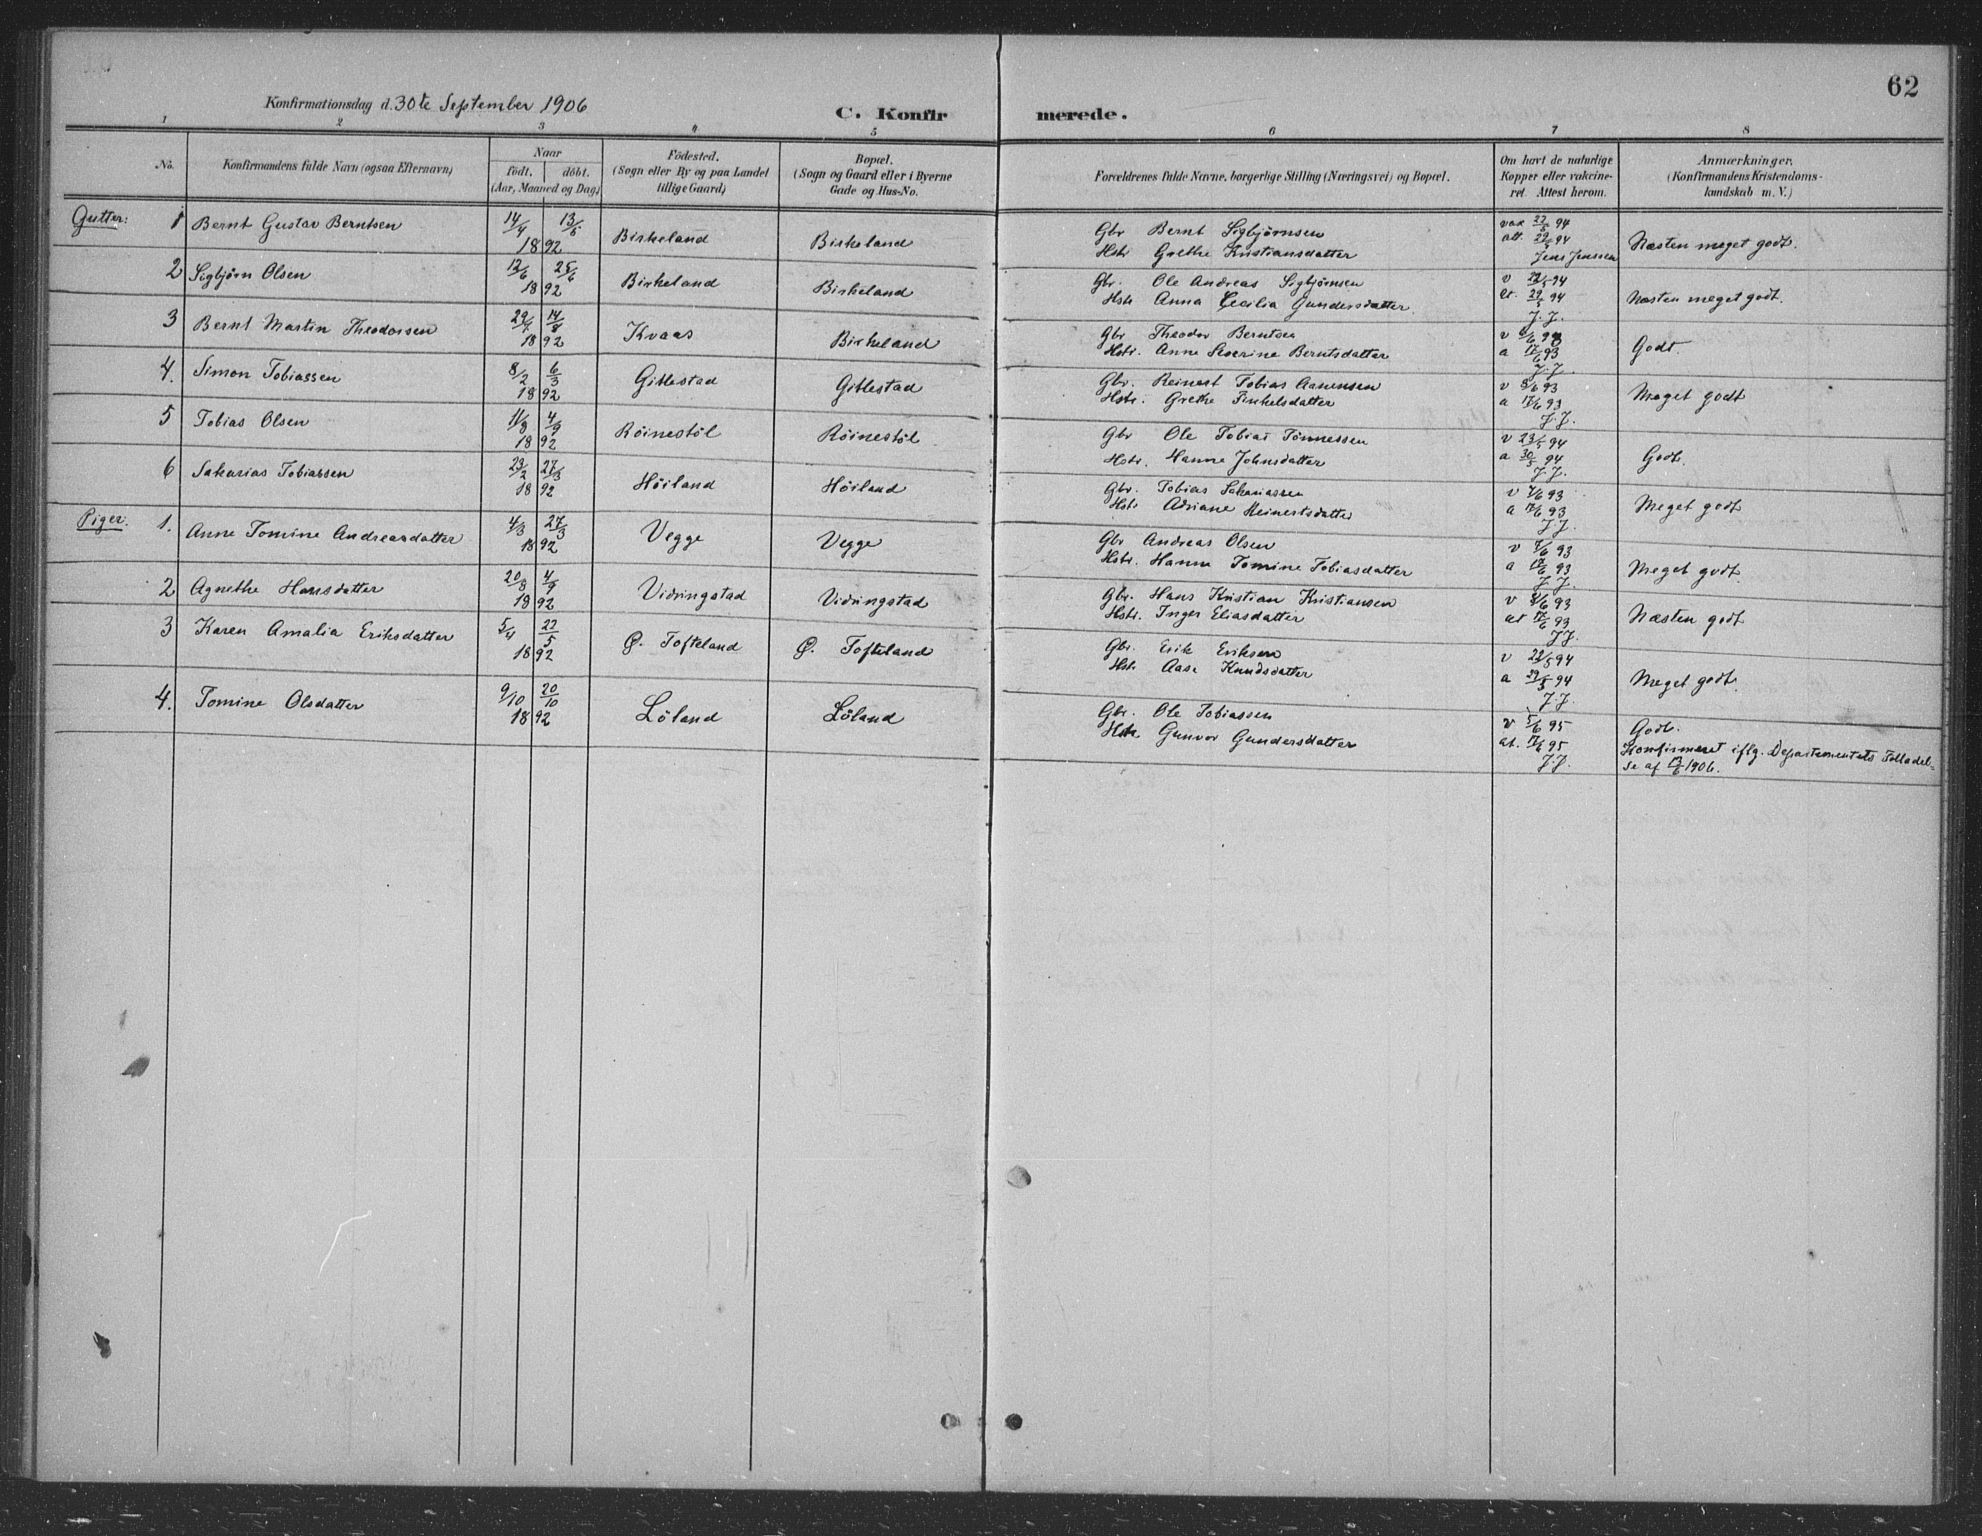 62
Konfirmationsdag d. 30te September 1906
C. Konfirmerede.
1 2 3 4 5 6 7 8
No.
Konfirmandens fulde Navn (ogsaa Efternavn)
Naar
født. døbt.
(Aar, Maaned og Dag)
Fødested.
(Sogn eller By og paa Landet
tillige Gaard)
Bopæl.
(Sogn og Gaard eller i Byerne
Gade og Hus-No.
Forældrenes fulde Navne, borgerlige Stilling (Næringsvei) og Bopæl.
Om havt de naturlige
Kopper eller vakcine-
ret. Attest herom.
Anmærkninger.
(Konfirmandens Kristendoms-
kundskab m. V.)
Gutter: 1 Bernt Gustav Berntsen 14/4 13/6 1892 Birkeland Birkeland
Gbr Bernt Sigbjørnsen vax 22/5 94
Hstr Grethe Kristiansdatter att. 29/5 94 Jens Jenssen Næsten meget godt.
2 Sigbjørn Olsen 12/6 25/6 1892 Birkeland Birkeland
Gbr. Ole Andreas Sigbjørnsen v 22/5 94
Hst Anna Cecilia Gundersdatter. at. 29/5 94 J.J. Næsten meget godt.
3 Bernt Martin Theodorsen 29/7 14/8 1892 Kvaas Birkeland
Gbr Theodor Berntsen
Hstr. Anne Severine Berntsdatter a 17/6 93 J.J. Godt.
4. Simon Tobiassen 8/2 6/3 1892 Gitlestad Gitlestad
Gbr. Reinert Tobias Aanensen v 8/6 93
Hstr. Grethe Tinkelsdatter a 17/6 93 J.J. Meget godt
5 Tobias Olsen 11/8 4/9 1892 Røinestøl Røinestøl
Gbr Ole Tobias Tønnessen v 23/5 94
Hstr. Hanne Johnsdatter a 30/5 94 J.J. Godt.
6 Sakarias Tobiassen 23/2 27/3 1892 Høiland Høiland
Gbr. Tobias Sakariassen v 7/6 93
Hstr Adriane Reinertsdatter a 17/6 93 J.J. Meget godt
Piger. 1. Anne Tomine Andreasdatter 4/3 27/3 1892 Vegge Vegge
Gbr Andreas Olsen v 7/6 93
Hstr. Hanne Tomine Tobiasdatter a 17/6 93 J.J. Meget godt.
2 Agnethe Hansdatter 20/8 4/9 1892 Vidringstad Vidringstad
Gbr. Hans Kristian Kristiansen v 8/6 93
Hstr. Inger Eliasdatter at 17/6 93 J.J. Næsten godt
3 Karen Amalia Eriksdatter 5/4 22/5 1892 Ø. Tofteland Ø. Tofteland
Gbr. Erik Eriksen v 22/5 94
Hstr Aase Knudsdatter a 29/5 94 J.J. Meget godt.
4. Tomine Olsdatter 9/10 20/10 1892 Løland Løland
Gbr. Ole Tobiassen v 5/6 95 Godt.
Hstr Gunvor Gundersdatter at. 17/6 95 Konfirmeret iflg. Departementets Tilladel-
J.J. se af 1906.